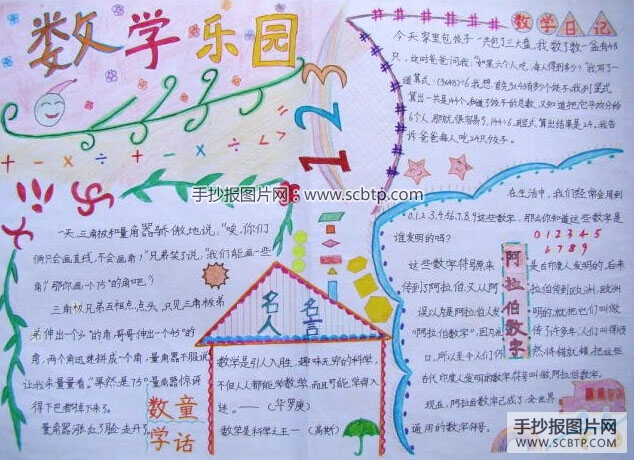 数学乐园
+ - × ÷ + - × ÷ = < >
1 2 3
数学日记
今天家里包饺子一共包了三大盘,我数了数一盘有48
只,这时爸爸问我:"如果六个人吃,每人得到多少?"我写了一
道算式:(3×48)÷6
算出一共是144个,知道了饺子的总数,又知道把它平均分给
6个人,那就很容易了,144÷6,用竖式算出结果是24。我告
诉爸爸每人吃24只饺子。
手抄报图片网 www.scbtp.com
一天,三角板和量角器骄傲地说,"唉,你们
俩只会画直线,不会画角!"兄弟笑了说:"我们能画一些
角!""那你画个75°的角吧。"
三角板兄弟互相点点头,只见三角板弟
弟伸出一个30°的角,哥哥伸出一个45°的
角,两个角迅速拼成一个角,量角器不服说
让我来量量看。"果然是75°。量角器惊讶
得下巴都掉下来了。
量角器涨红了脸走开了
数学童话
名人名言
数学是引人入胜、趣味无穷的科学,
不但人人都能学数学,而且可能学得入
迷。——(华罗庚)
数学是科学之王——(高斯)
在生活中,我们经常会用到
0.1.2.3.4.5.6.7.8.9这些数字,那么你知道这些数字是
谁发明的吗?
0 1 2 3 4 5
6 7 8 9
阿拉伯数字
这些数字符号原来是古印度人发明的,后来
传到阿拉伯,又从阿拉伯传到欧洲,欧洲
误以为是阿拉伯人发明的,就把它们叫做
"阿拉伯数字",因为流传了许多年,人们叫得顺
口,所以至今人们仍然将错就错,把这些
古代印度人发明的数字符号叫做阿拉伯数字。
现在,阿拉伯数字已成了全世界
通用的数字符号。
手抄报图片网
WWW.SCBTP.COM